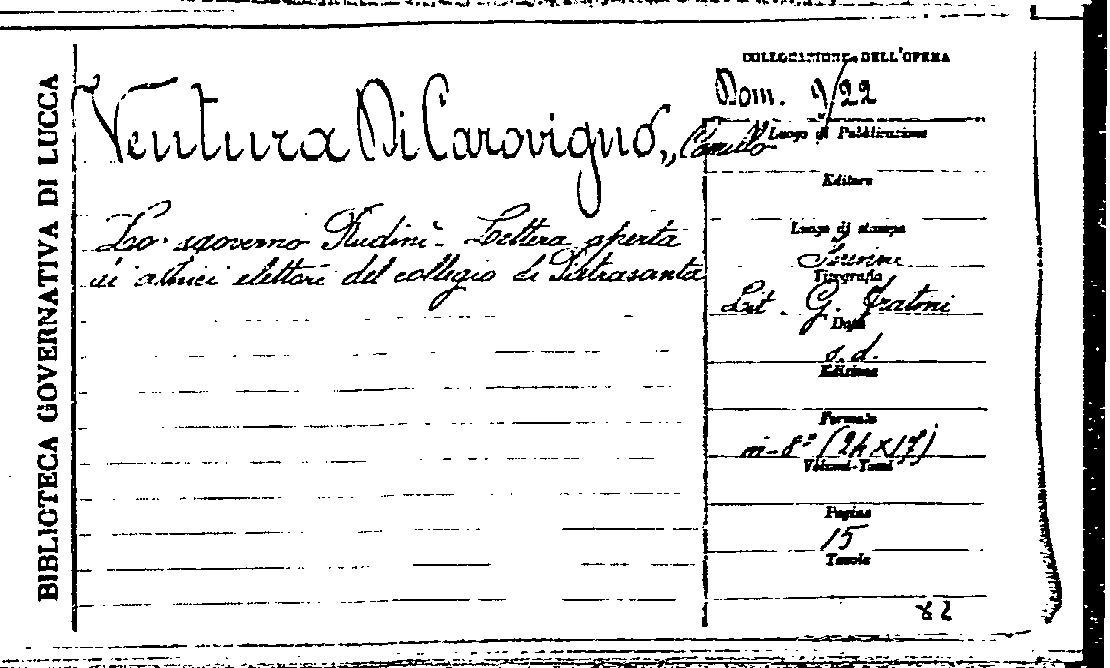 BIBLIOTECA GOVERNATIVA DI LUCCA
Ventura Di Carovigno, Camillo
Lo sgoverno Rudinì - Lettera aperta
ai amici elettori del collegio di Pietrasanta
COLLOCAZIONE DELL'OPERA
Dom. 9/22
Luogo di Pubblicazione
Editore
Luogo di stampa
Torino
Tipografia
Lit. G. Fratoni
Data
s. d.
Edizione
Formato
in-8° (24x17)
Volumi-Tomi
Pagine
15
Tavole
82